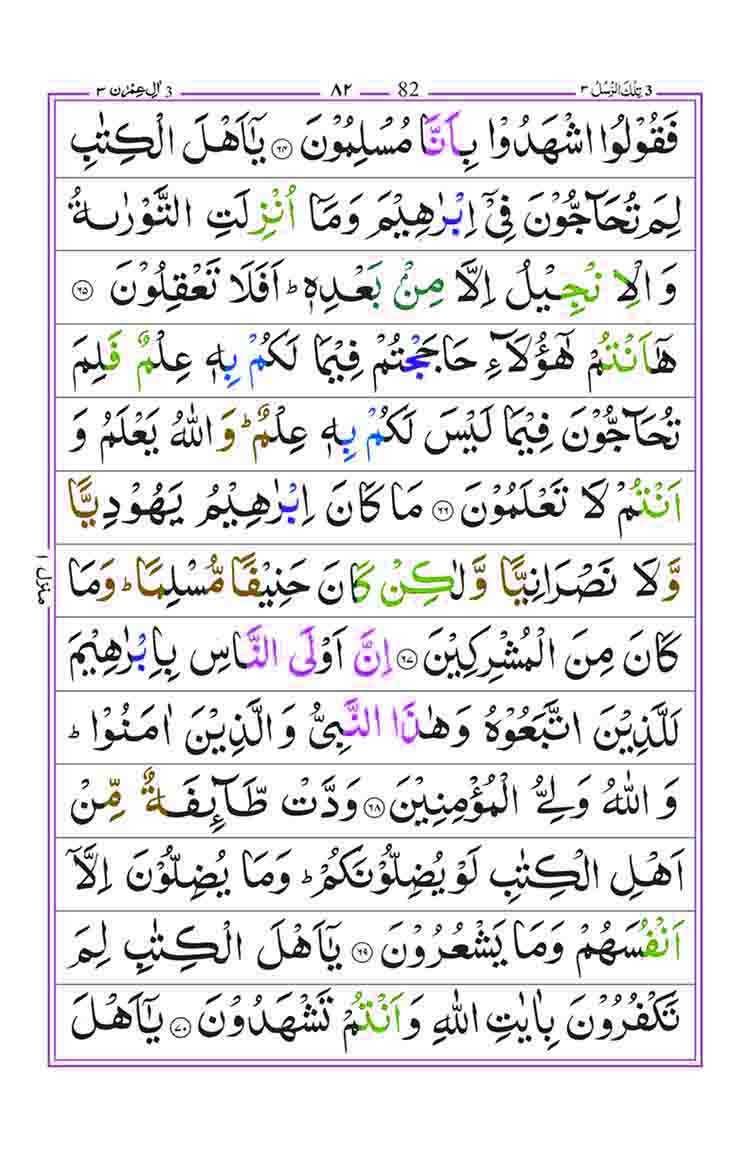 3 تِلْكَ الرُّسُلُ ٣ 82 ٨٢ 3 اٰلِ عِمْرٰن ٣
فَقُوْلُوا اشْهَدُوْا بِاَنَّا مُسْلِمُوْنَ ۝۶۴ يٰۤاَهْلَ الْكِتٰبِ
لِمَ تُحَآجُّوْنَ فِىْۤ اِبْرٰهِيْمَ وَمَاۤ اُنْزِلَتِ التَّوْرٰٮةُ
وَالْاِنْجِيْلُ اِلَّا مِنْۢ بَعْدِهٖؕ اَفَلَا تَعْقِلُوْنَ ۝۶۵
هٰۤاَنْتُمْ هٰٓؤُلَآءِ حَاجَجْتُمْ فِيْمَا لَكُمْ بِهٖ عِلْمٌ فَلِمَ
تُحَآجُّوْنَ فِيْمَا لَيْسَ لَكُمْ بِهٖ عِلْمٌؕ وَاللّٰهُ يَعْلَمُ وَ
اَنْتُمْ لَا تَعْلَمُوْنَ ۝۶۶ مَا كَانَ اِبْرٰهِيْمُ يَهُوْدِيًّا
وَّلَا نَصْرَانِيًّا وَّلٰكِنْ كَانَ حَنِيْفًا مُّسْلِمًاؕ وَمَا
كَانَ مِنَ الْمُشْرِكِيْنَ ۝۶۷ اِنَّ اَوْلَى النَّاسِ بِاِبْرٰهِيْمَ
لَلَّذِيْنَ اتَّبَعُوْهُ وَهٰذَا النَّبِىُّ وَالَّذِيْنَ اٰمَنُوْاؕ
وَاللّٰهُ وَلِىُّ الْمُؤْمِنِيْنَ ۝۶۸ وَدَّتْ طَّآٮِٕفَةٌ مِّنْ
اَهْلِ الْكِتٰبِ لَوْ يُضِلُّوْنَكُمْؕ وَمَا يُضِلُّوْنَ اِلَّاۤ
اَنْفُسَهُمْ وَمَا يَشْعُرُوْنَ ۝۶۹ يٰۤاَهْلَ الْكِتٰبِ لِمَ
تَكْفُرُوْنَ بِاٰيٰتِ اللّٰهِ وَاَنْتُمْ تَشْهَدُوْنَ ۝۷۰ يٰۤاَهْلَ
منزل ا